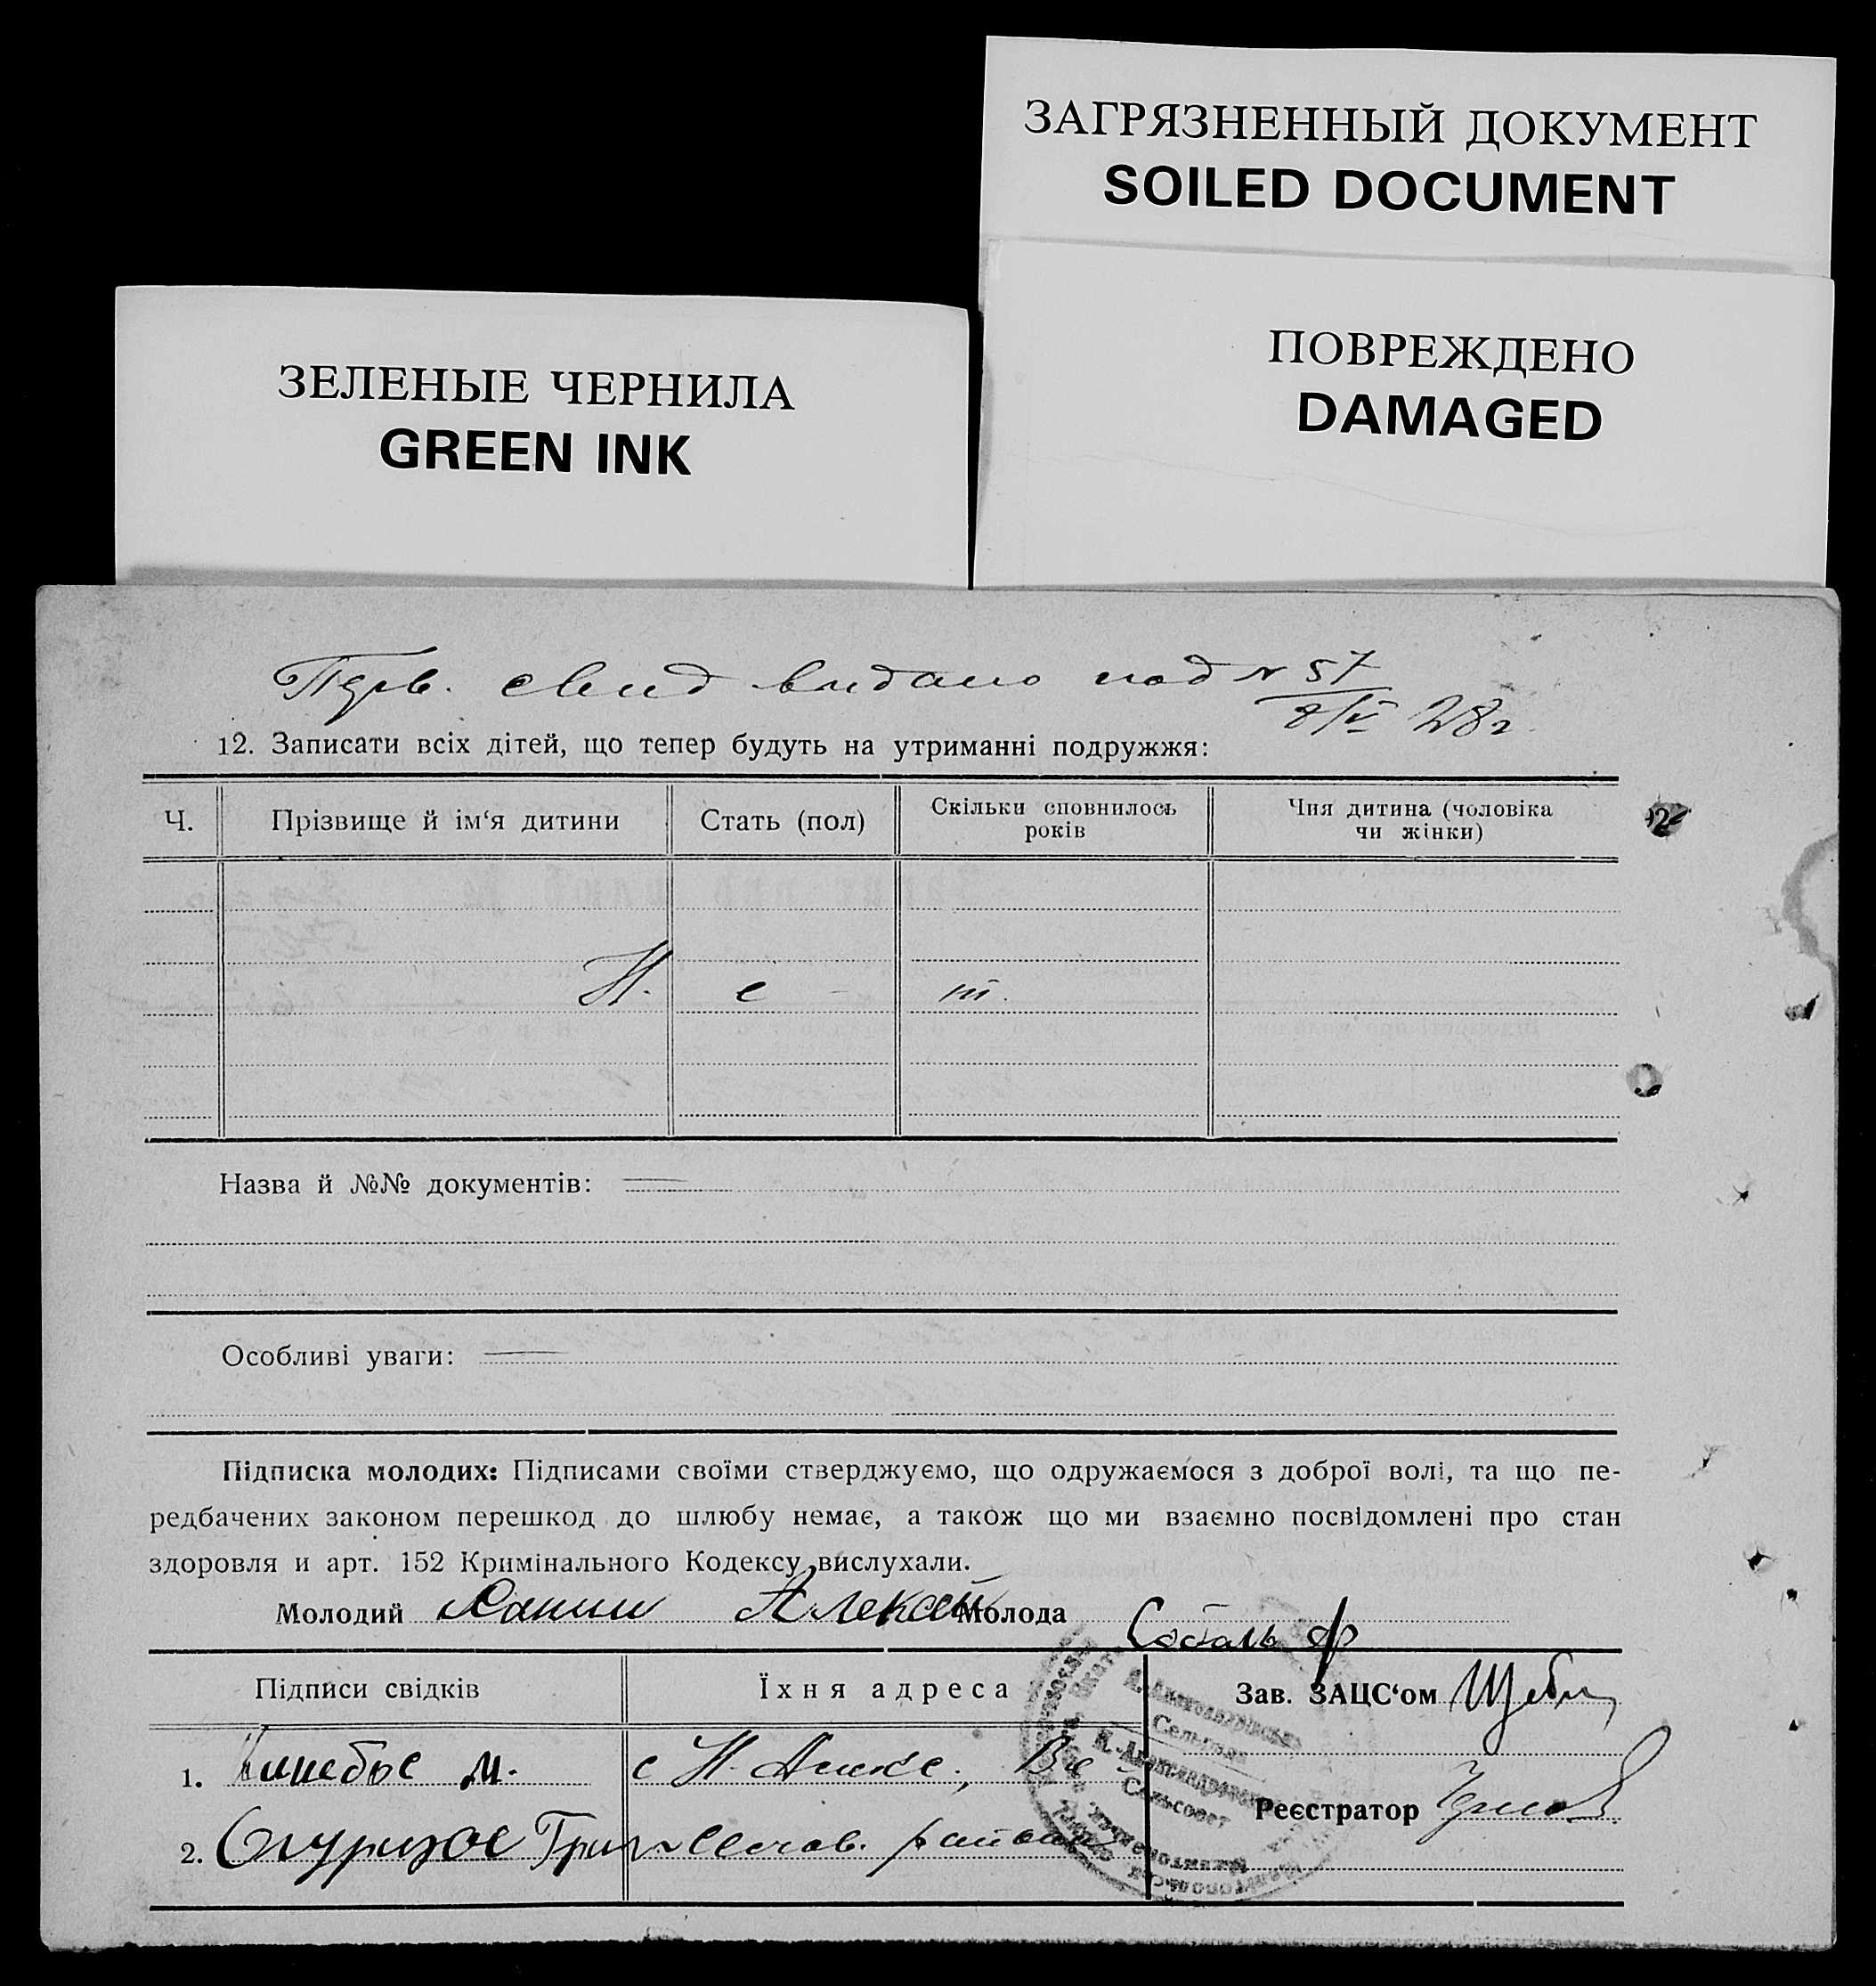 ЗАГРЯЗНЕННЫЙ ДОКУМЕНТ
SOILED DOCUMENT
ПОВРЕЖДЕНО
DAMAGED
ЗЕЛЕНЫЕ ЧЕРНИЛА
GREEN INK
видано под № 57
8/V 28 г.
12. Записати всіх дітей, що тепер будуть на утриманні подружжя:
Ч. Прізвище й ім‘я дитини Стать (пол) Скільки сповнилось років Чия дитина (чоловіка чи жінки)
Н. е т.
Назва й №№ документів:
Особливі уваги:
Підписка молодих: Підписами своїми стверджуємо, що одружаємося з доброї волі, та що пе-
редбачених законом перешкод до шлюбу немає, а також що ми взаємно посвідомлені про стан
здоровля и арт. 152 Кримінального Кодексу вислухали.
Молодий Алексей Молода
Підписи свідків Їхня адреса Зав. ЗАЦС‘ом
1. м. с Н.
2. район
Реєстратор
Сельсовет